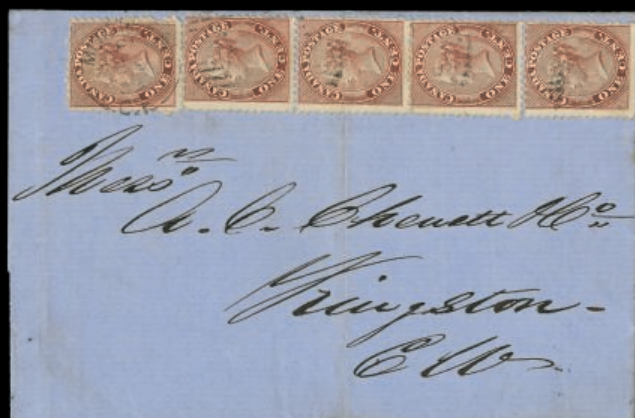 CANADA POSTAGE ONE CENT CANADA POSTAGE ONE CENT CANADA POSTAGE ONE CENT CANADA POSTAGE ONE CENT CANADA POSTAGE ONE CENT
Messrs
A. C. & Co
Kingston -
C W